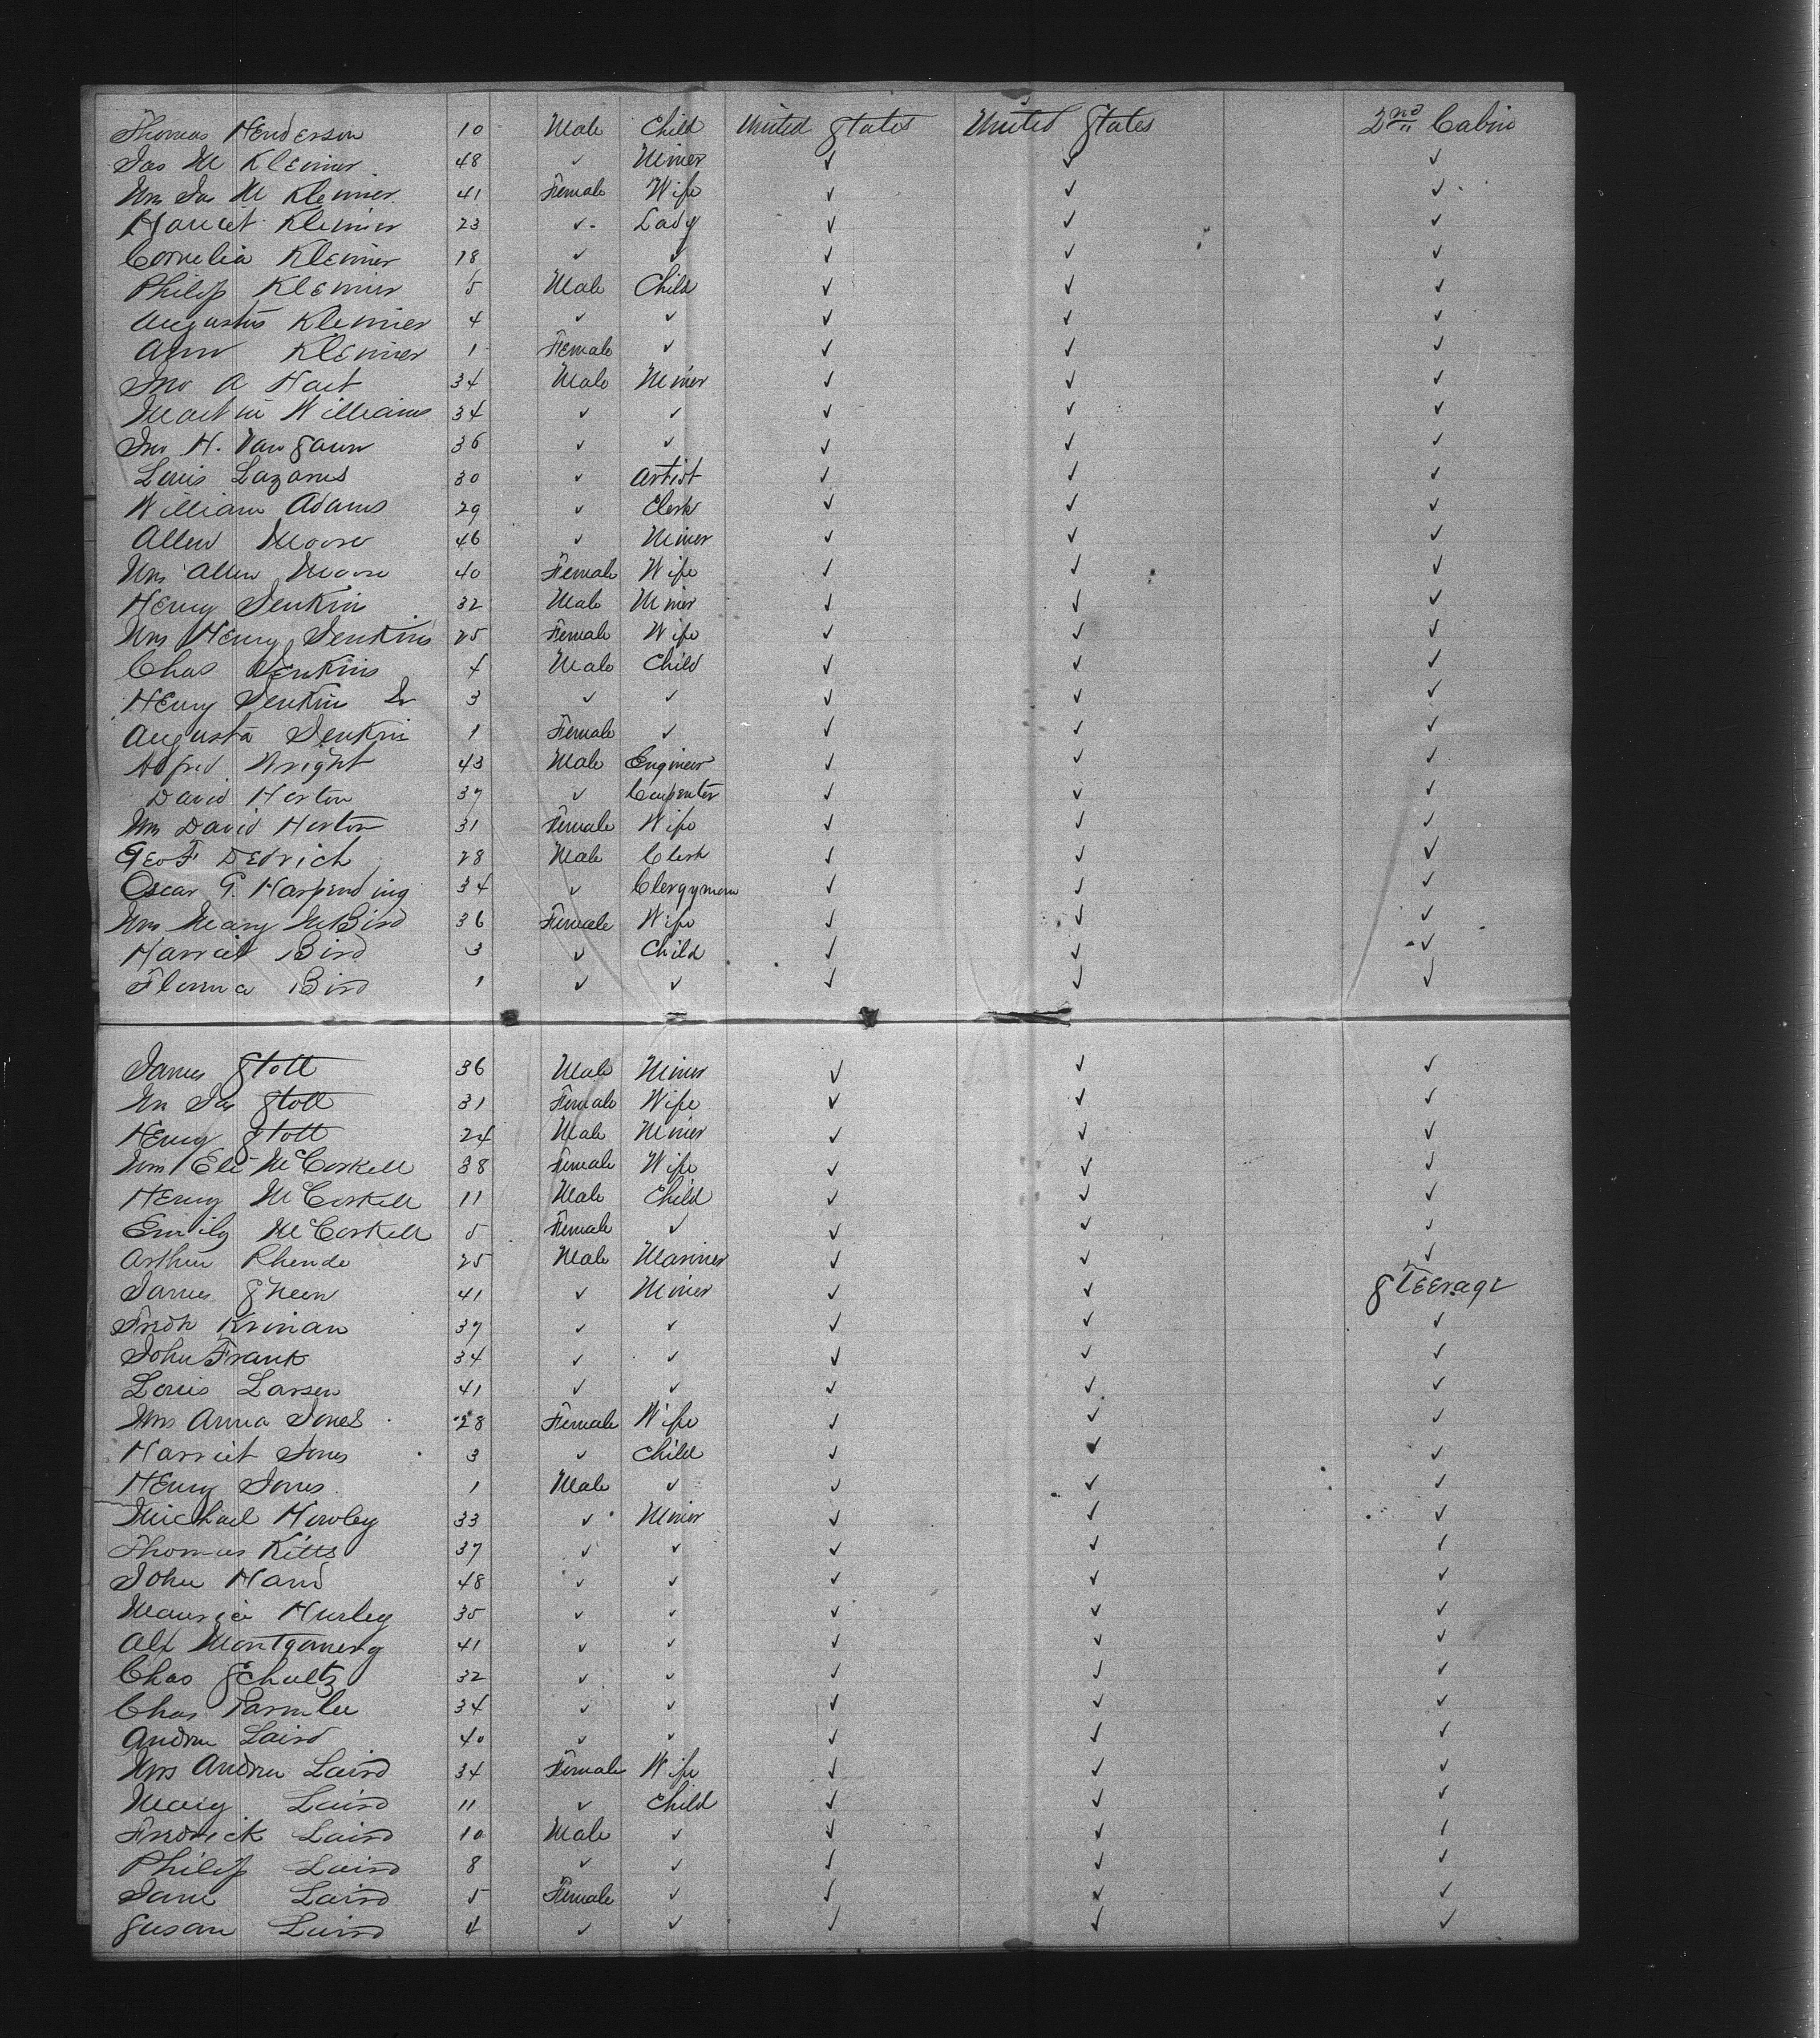 Thomas Henderson 10 Male Child United States United States 2nd Cabin
Jas M Klemier 48 ✓ Miner ✓ ✓ ✓
Mrs Jas M Klemier 41 Female Wife ✓ ✓ ✓
Harriet Klemier 23 ✓ Lady ✓ ✓ ✓
Cornelia Klemier 18 ✓ ✓ ✓ ✓ ✓
Philip Klemier 5 Male Child ✓ ✓ ✓
Augustus Klemier 4 ✓ ✓ ✓ ✓ ✓
Ann Klemier 1 Female ✓ ✓ ✓ ✓
Jno A Hart 34 Male Miner ✓ ✓ ✓
Martin Williams 34 ✓ ✓ ✓ ✓ ✓
Jno H. 36 ✓ ✓ ✓ ✓ ✓
Louis Lazarus 30 ✓ Artist ✓ ✓ ✓
William Adams 29 ✓ Clerk ✓ ✓ ✓
Allen Moore 46 ✓ Miner ✓ ✓ ✓
Mrs Allen Moore 40 Female Wife ✓ ✓ ✓
Henry Jenkin 32 Male Miner ✓ ✓ ✓
Mrs Henry Jenkins 25 Female Wife ✓ ✓ ✓
Chas Jenkins 4 Male Child ✓ ✓ ✓
Henry Jenkin Jr 3 ✓ ✓ ✓ ✓ ✓
Augusta Jenkin 1 Female ✓ ✓ ✓ ✓
Alfred Wright 43 Male Engineer ✓ ✓ ✓
David Horton 37 ✓ Carpenter ✓ ✓ ✓
Mrs David Horton 31 Female Wife ✓ ✓ ✓
Geo F Dedrich 28 Male Clerk ✓ ✓ ✓
Oscar G. Harpending 34 ✓ Clergyman ✓ ✓ ✓
Mrs Mary M Bird 36 Female Wife ✓ ✓ ✓
Harriet Bird 3 ✓ Child ✓ ✓ ✓
Bird 1 ✓ ✓ ✓ ✓ ✓
James Stott 36 Male Miner ✓ ✓ ✓
Mrs Jas Stott 31 Female Wife ✓ ✓ ✓
Henry Stott 24 Male Miner ✓ ✓ ✓
Mrs Eli McCorkell 38 Female Wife ✓ ✓ ✓
Henry McCorkell 11 Male Child ✓ ✓ ✓
Emily McCorkell 5 Female ✓ ✓ ✓ ✓
Arthur Rhende 25 Male Mariner ✓ ✓ ✓
James Sheen 41 ✓ Miner ✓ ✓ Steerage
Fredk Krinan 37 ✓ ✓ ✓ ✓ ✓
John Frank 34 ✓ ✓ ✓ ✓ ✓
Louis Larsen 41 ✓ ✓ ✓ ✓ ✓
Mrs Anna Jones 28 Female Wife ✓ ✓ ✓
Harriet Jones 3 ✓ Child ✓ ✓ ✓
Henry Jones 1 Male ✓ ✓ ✓ ✓
Michael Howley 33 ✓ Miner ✓ ✓ ✓
Thomas Kitts 37 ✓ ✓ ✓ ✓ ✓
John Hand 48 ✓ ✓ ✓ ✓ ✓
Maurice Hurley 35 ✓ ✓ ✓ ✓ ✓
Alx Montgomery 41 ✓ ✓ ✓ ✓ ✓
Chas Schultz 32 ✓ ✓ ✓ ✓ ✓
Chas Parmlee 34 ✓ ✓ ✓ ✓ ✓
Andrew Laird 40 ✓ ✓ ✓ ✓ ✓
Mrs Andrew Laird 34 Female Wife ✓ ✓ ✓
Mary Laird 11 ✓ Child ✓ ✓ ✓
Fredrick Laird 10 Male ✓ ✓ ✓ ✓
Philip Laird 8 ✓ ✓ ✓ ✓ ✓
Jane Laird 5 Female ✓ ✓ ✓ ✓
Susan Laird 4 ✓ ✓ ✓ ✓ ✓